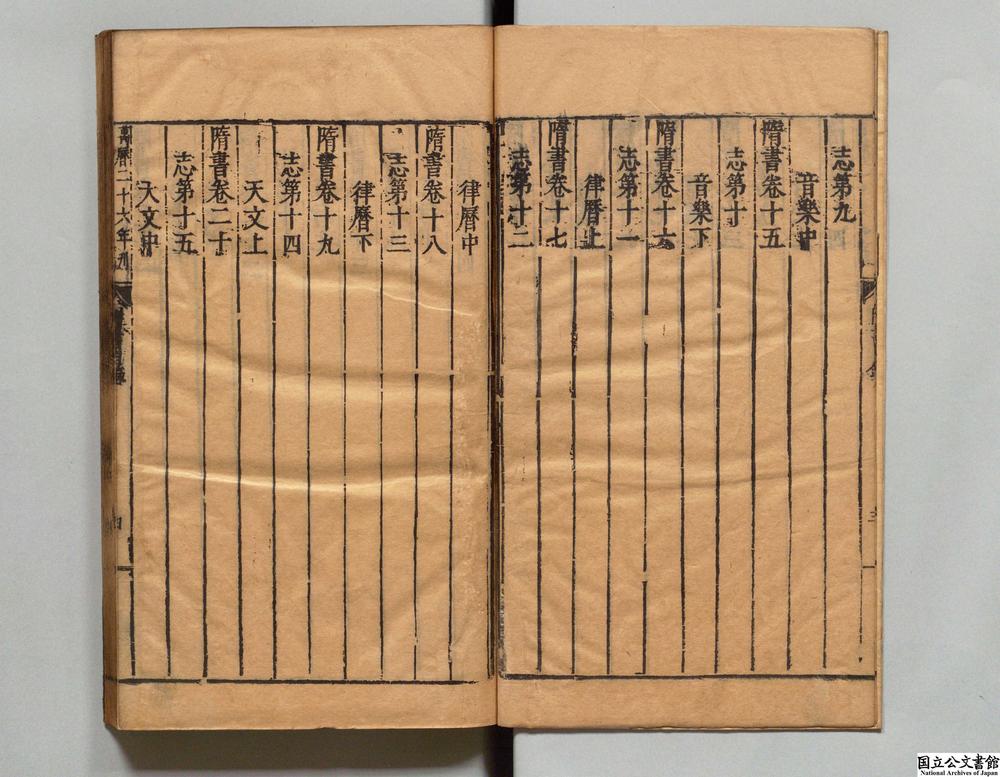 志第九
音樂中
隋書卷十五
志第十
音樂下
隋書卷十六
志第十一
律曆上
隋書卷十七
志第十二
律曆中
隋書卷十八
志第十三
律曆下
隋書卷十九
志第十四
天文上
隋書卷二十
志第十五
天文中
萬曆二十六年刊
四
国立公文書館
National Archives of Japan